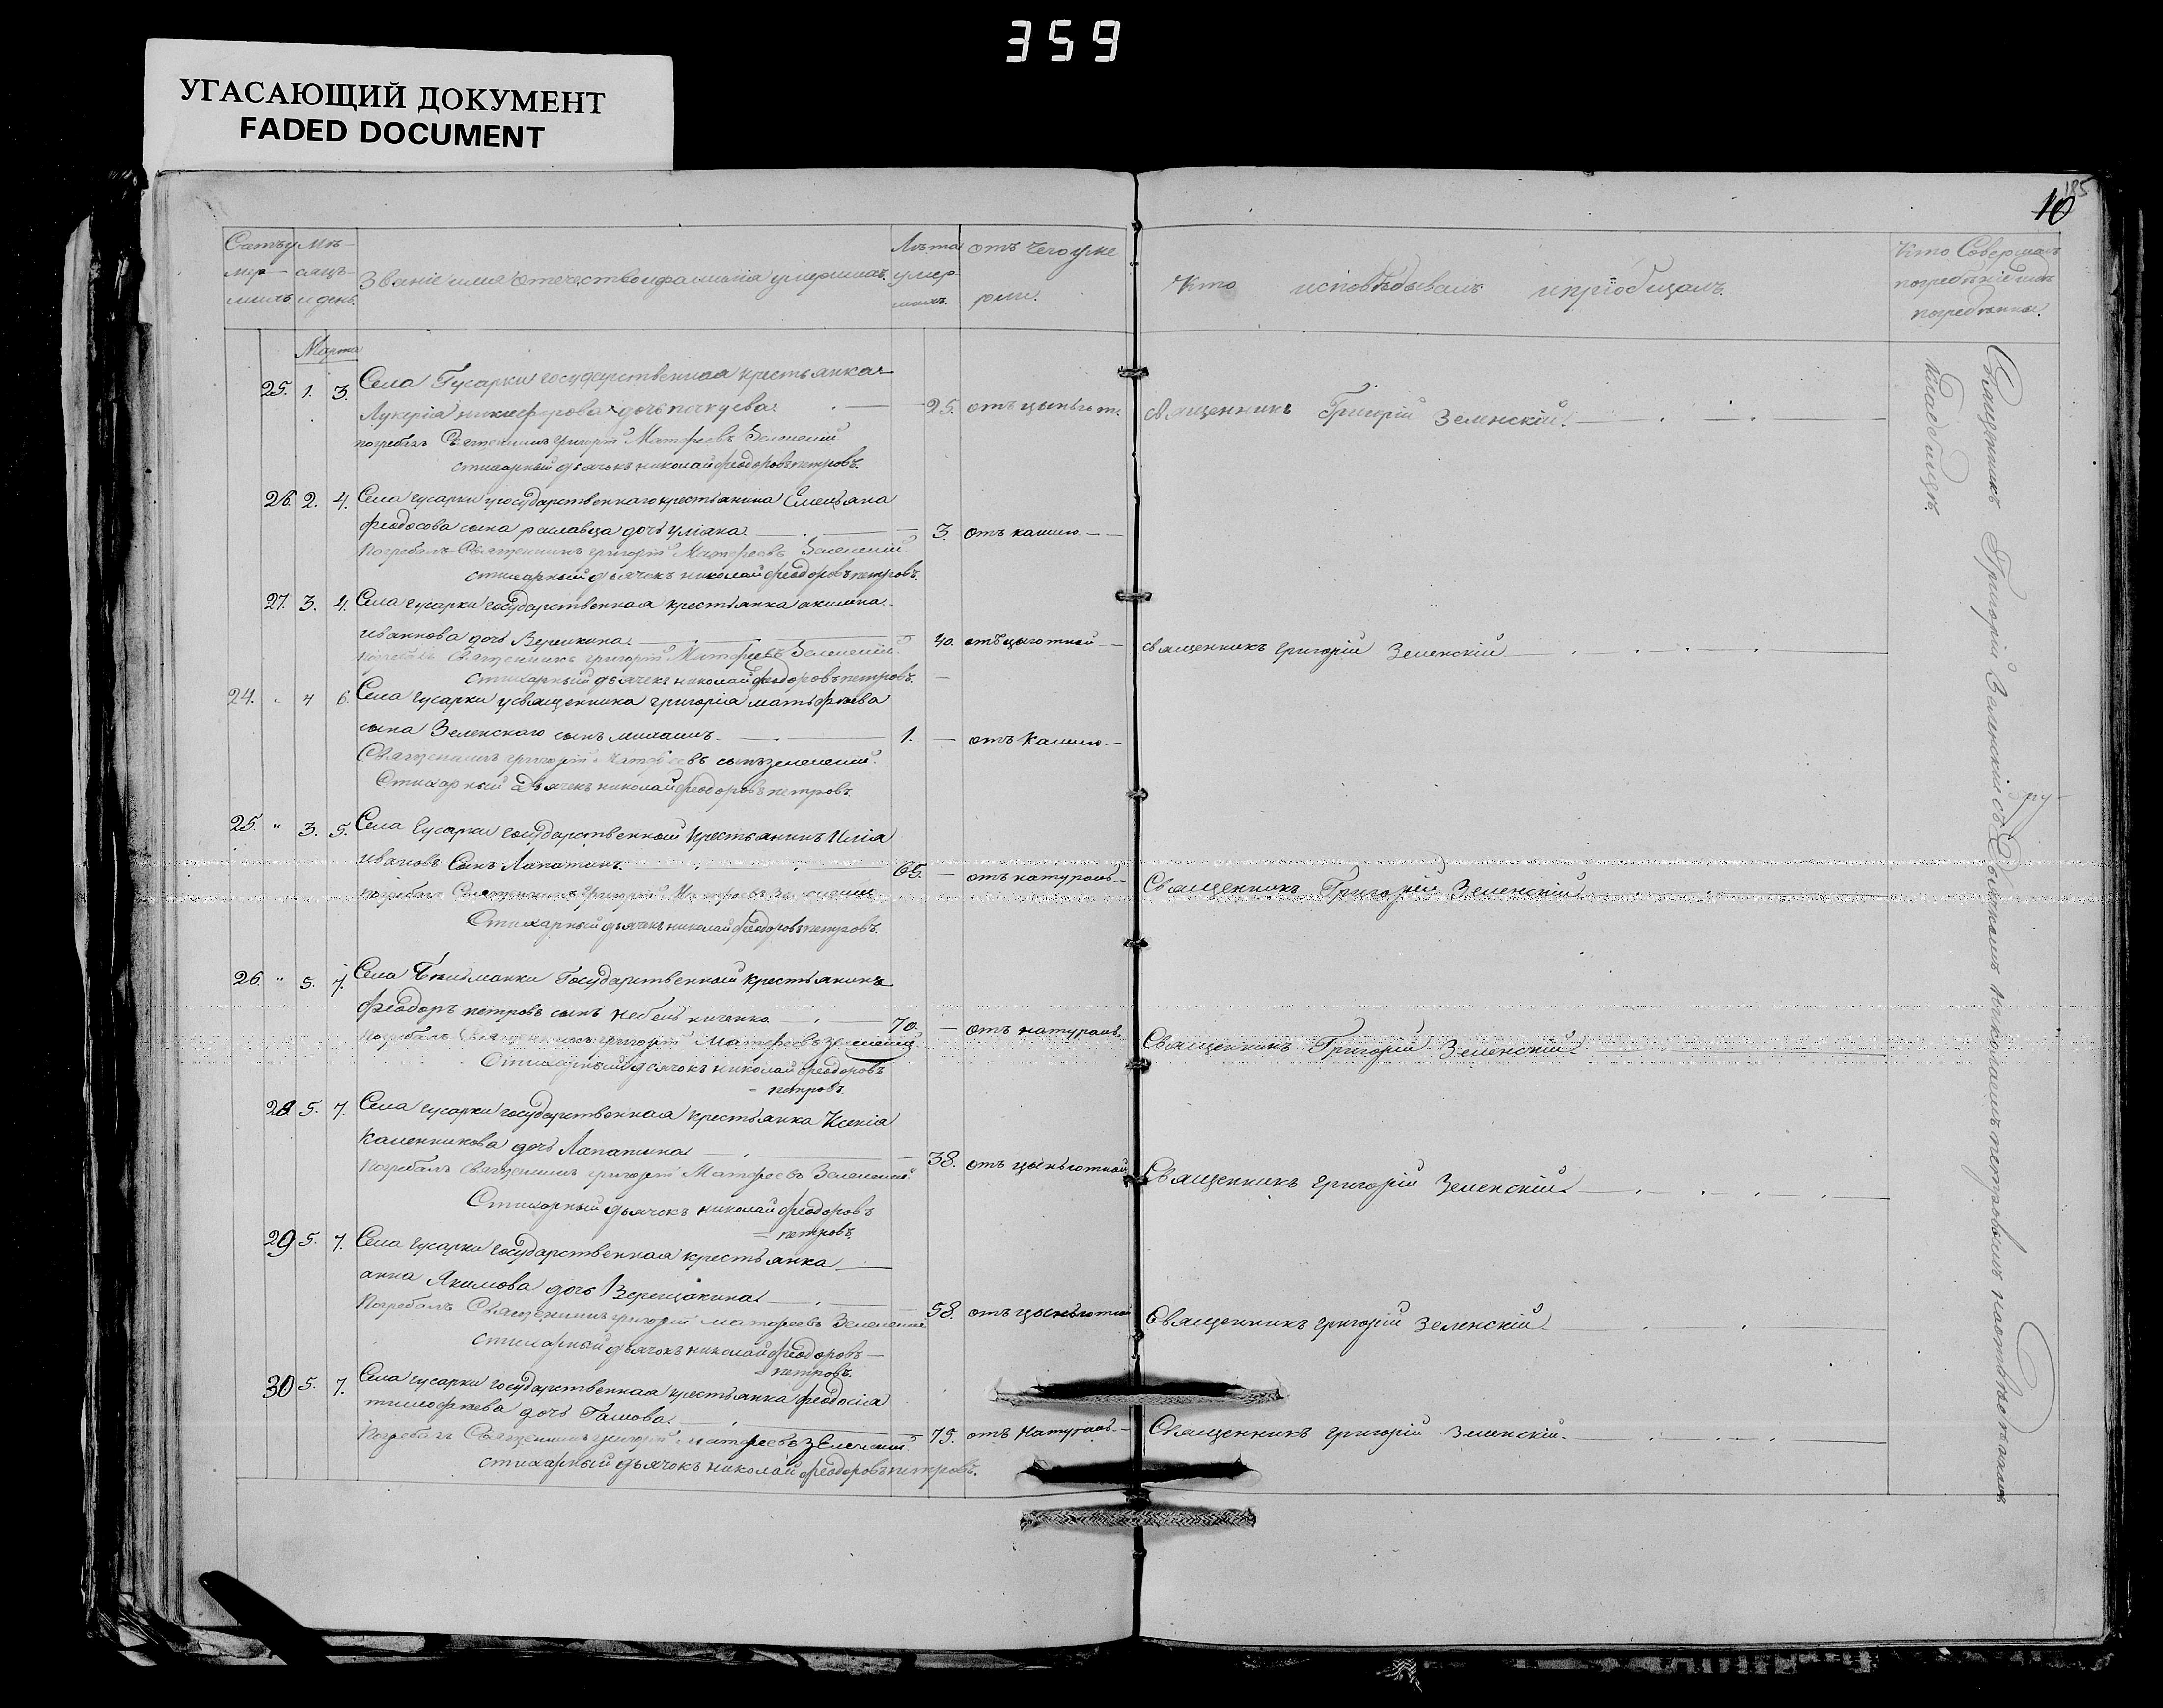 359
УГАСАЮЩИЙ ДОКУМЕНТ
FADED DOCUMENT
185
10
Счетъ умершихъ.
Мѣсяцъ и день.
Званіе имя отчество и фамилія умершихъ.
Лѣта умершихъ.
отъ чего умерли.
Кто исповѣдывалъ и пріобщалъ.
Кто Совершалъ погребѣніе и гдѣ погребѣнны.
Марта
25. 1. 3. Села Гусарки государственная крестьянка
Лукерія никиферова дочь 25. отъ цыньгот. священникъ Григорій Зеленскій.
погребалъ Священникъ григорій Матфеевъ Зеленскій
стихарный дьячокъ николай феодоровъ петровъ.
26. 2. 4. Села гусарки у государственнаго крестьянина Емельяна
феодосова сына раславца дочь уліяна. 3. отъ кашлю
Погребалъ Священникъ григорій Матфеевъ Зеленскій.
стихарный дьячекъ николай феодоровъ петровъ.
27. 3. 4. Села гусарки государственная крестьянка акилина
иваннова дочь 40. отъ цыготной священникъ григорій Зеленскій
погребалъ Священникъ григорій Матфеевъ Зеленскій.
Стихарный дьячекъ николай феодоровъ петровъ.
24. " 4 6. Села гусарки у священника григорія матьфѣева
сына Зеленскаго сынъ михаилъ. 1. — отъ Кашлю.
Священникъ григорій Матфеевъ сынъ зеленскій.
Стихарный Дьячекъ николай феодоровъ петровъ.
25. " 3. 5. Села Гусарки государственной Крестьянинъ Илія
ивановъ Сынъ Лапатинъ. 65. — отъ натураль. Священникъ Григорій Зеленскій.
погребалъ Священникъ григорій Матфеевъ Зеленскій
Стихарный дьячекъ николай феодоровъ петровъ.
26. " 5. 7. Села Государственной крестьянинъ
феодоръ петровъ сынъ 70. — отъ натураль. Священникъ Григорій Зеленскій.
Погребалъ Священникъ григорій Матфеевъ зеленскій.
Стихарный дьячокъ николай феодоровъ
= петровъ.
28 5. 7. Села гусарки государственная крестьянка Ксенія
Каленникова дочь Лапатина 38. отъ цыньготной Священникъ григорій Зеленскій.
Погребалъ Священникъ григорій Матфеевъ Зеленскій.
Стихарный дьячокъ николай феодоровъ
= петровъ.
29 5. 7. Села гусарки государственная крестьянка
анна Якимова дочь Верещакина 58. отъ цыньготной Священникъ григорій Зеленскій.
Погребалъ Священникъ григорій матфеевъ Зеленскій
стихарный дьячокъ николай феодоровъ
= петровъ.
30 5. 7. Села гусарки государственная крестьянка феодосія
тимофѣева дочь 75. отъ Натураль. Священникъ григорій Зеленскій.
Погребалъ Священникъ григорій матфеевъ зеленскій.
стихарный дьячокъ николай феодоровъ петровъ.
Священникъ Григорій Зеленскій съ Дьячкомъ николаемъ петровымъ
кладбищѣ.